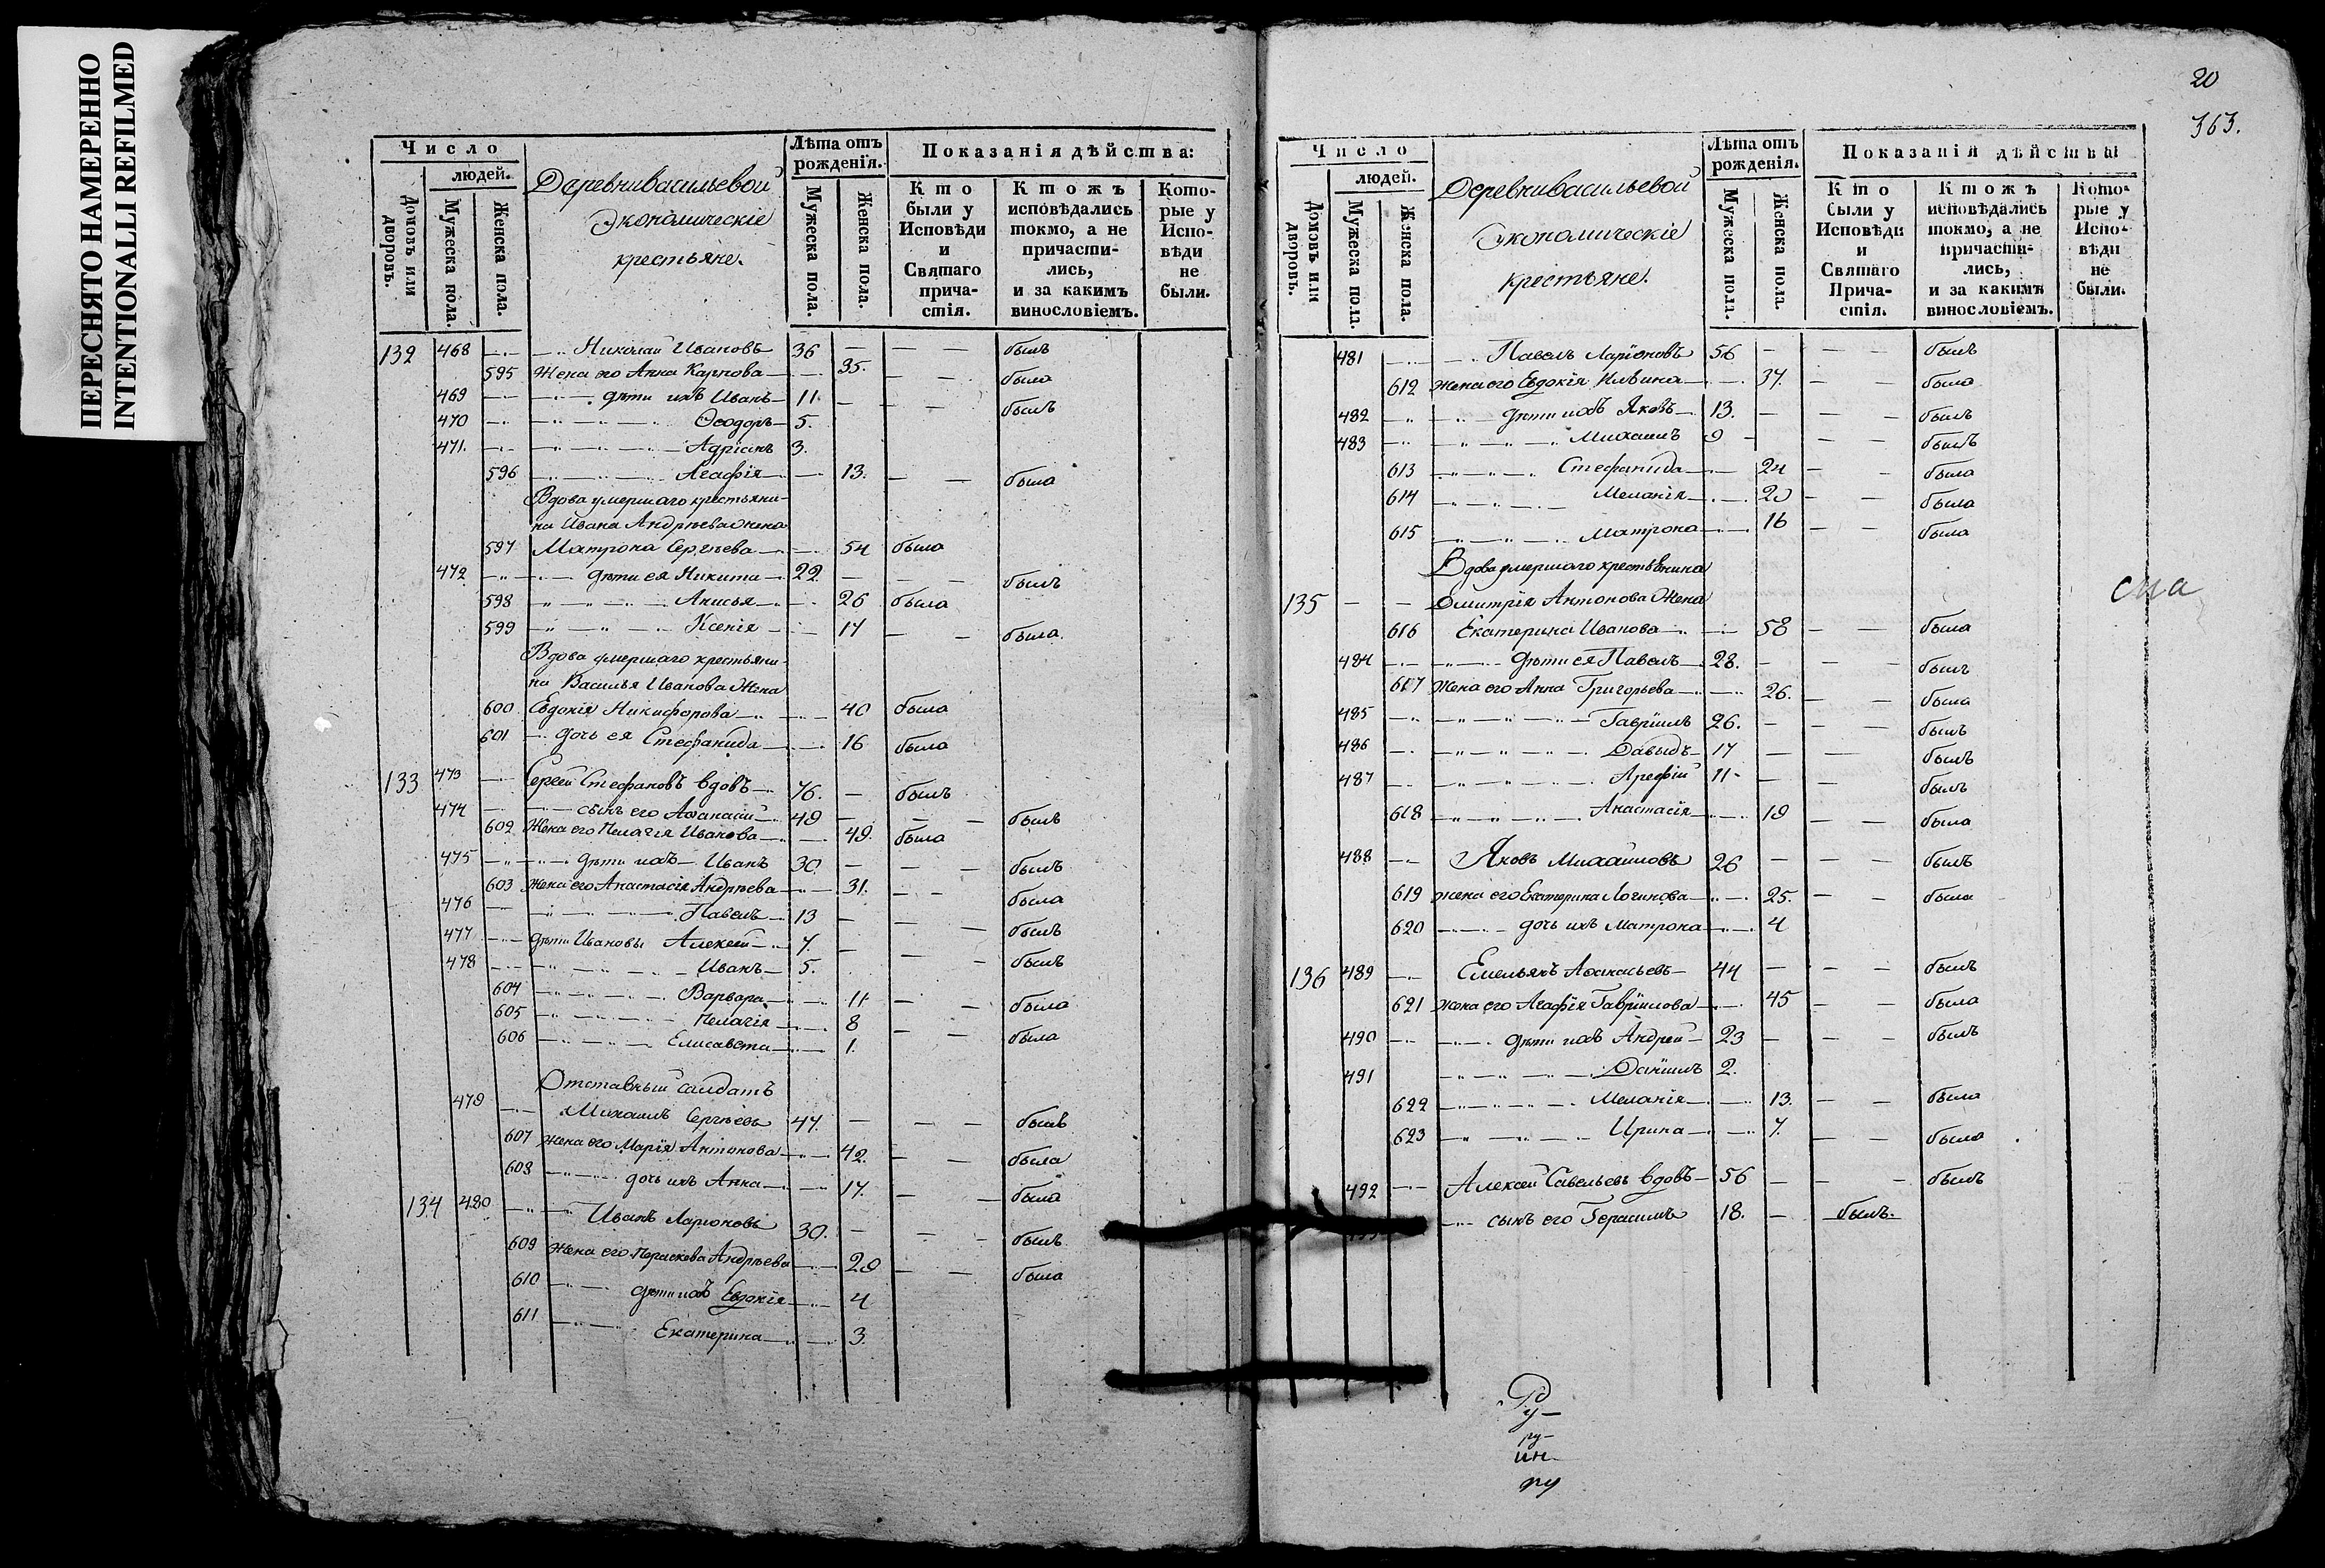 ПЕРЕСНЯТО НАМЕРЕННО
INTENTIONALLI REFILMED
Число
людей.
Домовъ или дворовъ.
Мужеска пола.
Женска пола.
Деревни Васильевой
Экономическіе
крестьяне.
Лѣта отъ рожденія.
Мужеска пола.
Женска пола.
Показанія дѣйства:
Кто были у Исповѣди и Святаго причастія.
Ктожъ исповѣдались токмо, а не причастились, и за какимъ винословіемъ.
Которые у Исповѣди не были.
132 468 Николай Ивановъ 36 былъ
595 Жена его Анна Карпова 35. была
469 дѣти ихъ Иванъ 11. былъ
470 Ѳеодоръ 5.
471. Адріанъ 3.
596 Агафія 13. была
Вдова умершаго крестьяни-
на Ивана Андрѣева жена
597 Матрона Сергѣева 54 была
472 дѣти ея Никита 22. былъ
598 Анисья 26 была
599 Ксенія 17 была.
Вдова умершаго крестьяни-
на Василья Иванова жена
600 Евдокія Никифорова 40 была
601 дочь ея Стефанида 16 была
133 473 Сергей Стефановъ вдовъ 76. былъ
474 сынъ его Аѳанасій 49 былъ
602 Жена его Пелагія Иванова 49. была
475 дѣти ихъ Иванъ 30. былъ
603 жена его Анастасія Андрѣева 31. была
476 Павелъ 13 былъ
477 дѣти Ивановы Алексей 7. былъ
478 Иванъ 5.
604 Варвара 11 была
605 Пелагія 8 была
606 Елисавета 1.
Отставный салдатъ
479 Михаилъ Сергѣевъ 47. былъ
607 жена его Марія Антонова 42. была
608 дочь ихъ Анна 17. была
134 480 Иванъ Ларіоновъ 30. былъ
609 жена его Параскева Андрѣева 29 была
610 дѣти ихъ Евдокія 4
611 Екатерина 3.
20
363.
Число
людей.
Домовъ или дворовъ.
Мужеска пола.
Женска пола.
Деревни Васильевой
Экономическіе
крестьяне.
Лѣта отъ рожденія.
Мужеска пола.
Женска пола.
Показанія дѣйства
Кто были у Исповѣди и Святаго Причастія.
Ктожъ исповѣдались токмо, а не причастились, и за какимъ винословіемъ.
Которые у Исповѣди не были.
481 Павелъ Ларіоновъ 56 былъ
612 жена его Евдокія Ильина 37. была
482 дѣти ихъ Яковъ 13. былъ
483 Михаилъ 9 былъ
613 Стефанида 24 была
614 Меланія 20 была
615 Матрона 16 была
Вдова умершаго крестьянина
135 Димитрія Антонова Жена
616 Екатерина Иванова 58 была
484 дѣти ея Павелъ 28. былъ
617 жена его Анна Григорьева 26. была
485 Гавріилъ 26. былъ
486 Давыдъ 17 былъ
487 Арефій 11 былъ
618 Анастасія 19 была
488 Яковъ Михаиловъ 26 былъ
619 жена его Екатерина Логинова 25. была
620 дочь ихъ Матрона 4
136 489 Емельянъ Аѳанасьевъ 44 былъ
621 жена его Агафія Гавріилова 45 была
490 дѣти ихъ Андрей 23 былъ
491 Даніилъ 2.
622 Меланія 13. была
623 Ирина 7. была
492 Алексей Савельевъ вдовъ 56 былъ
сынъ его Герасимъ 18. былъ.
ру